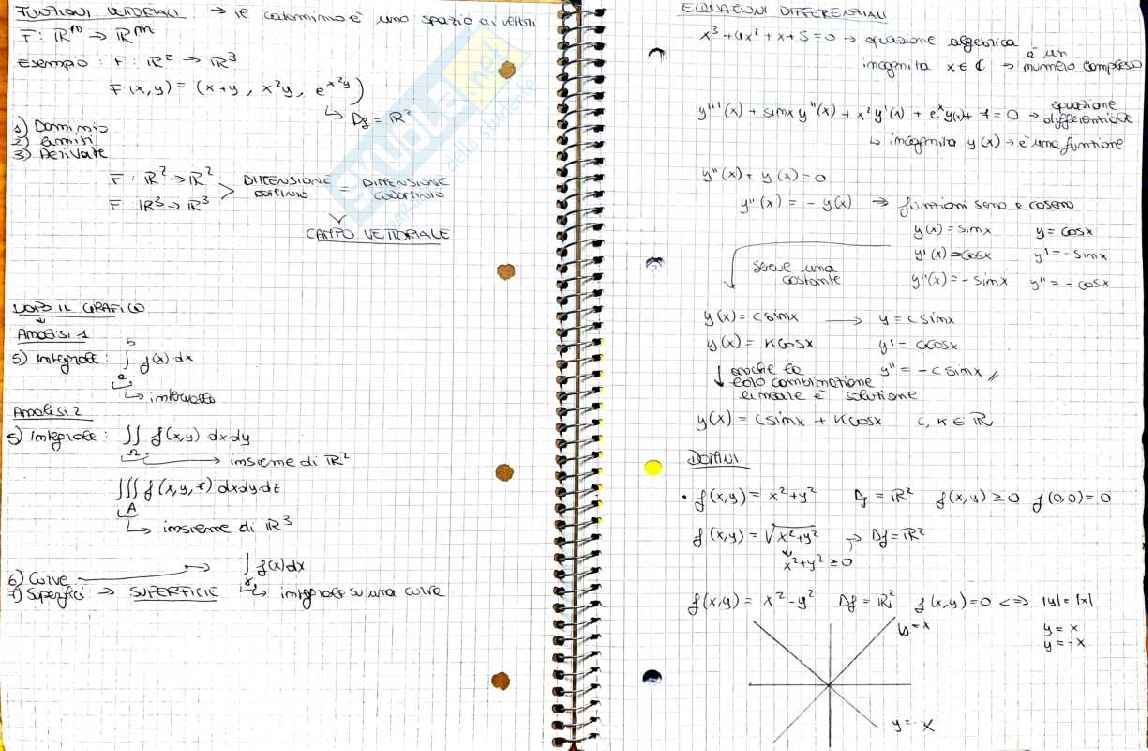 FUNZIONI VETTORIALI → il codominio è uno spazio di vettori
F: ℝⁿ → ℝᵐ
Esempio: F: ℝ² → ℝ³
F(x,y) = (x+y, x²y, e^{x²y})
↳ Df = ℝ²
1) Dominio
2) Limiti
3) Derivate
F: ℝ² → ℝ²
F ℝ³ → ℝ³
> DIMENSIONE DOMINIO = DIMENSIONE CODOMINIO
CAMPO VETTORIALE
IL GRAFICO
Analisi 1
5) Integrale: ∫ₐᵇ f(x) dx
↳ intervallo
Analisi 2
5) Integrale: ∬ f(x,y) dxdy
Ω → insieme di ℝ²
∭ f(x,y,z) dxdydz
A
↳ insieme di ℝ³
6) Curve → ∫ f(x) dx
7) Superfici → SUPERFICIE γ ↳ integrale su una curva
EQUAZIONI DIFFERENZIALI
x³ + 4x² + x + 5 = 0 → equazione algebrica
incognita x ∈ ℂ → è un numero complesso
y'''(x) + sinx y''(x) + x² y'(x) + eˣy(x) + 1 = 0 → equazione differenziale
↳ incognita y(x) → è una funzione
y''(x) + y(x) = 0
y''(x) = -y(x) → funzioni seno e coseno
y(x) = sinx y = cosx
y'(x) = cosx y' = -sinx
y''(x) = -sinx y'' = -cosx
serve una costante
y(x) = c sinx → y = c sinx
y(x) = k cosx y' = c cosx
y'' = -c sinx //
↓ anche la loro combinazione lineare è soluzione
y(x) = c sinx + k cosx c, k ∈ ℝ
DOMINI
• f(x,y) = x² + y² Df = ℝ² f(x,y) ≥ 0 f(0,0) = 0
f(x,y) = √(x²+y²) → Df = ℝ²
x²+y² ≥ 0
f(x,y) = x² - y² Df = ℝ² f(x,y) = 0 <=> |y| = |x|
y = x
y = x
y = -x
y = -x